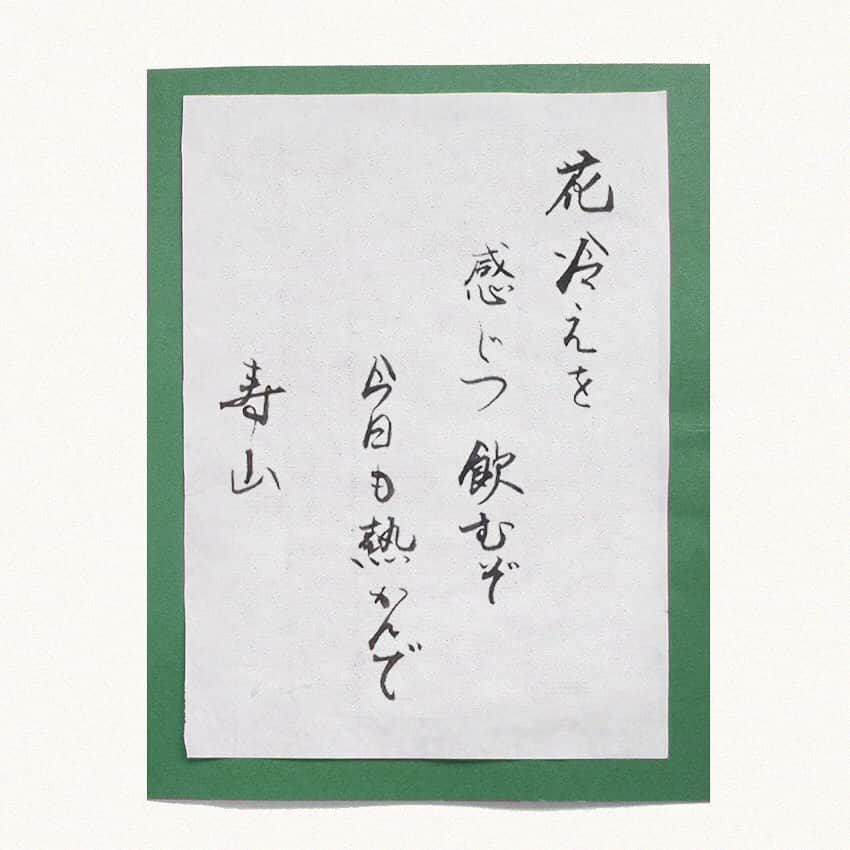 花冷えを
感じつ飲むぞ
今日も熱かんで
寿山